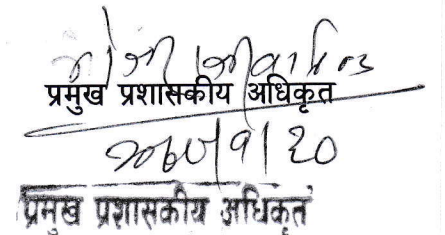 प्रमुख प्रशासकीय अधिकृत
२०७८/९/२०
प्रमुख प्रशासकीय अधिकृत